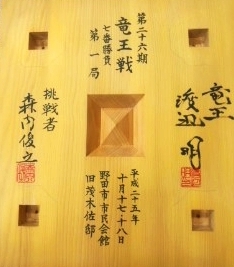 第二十六期
竜王戦
七番勝負
第一局
竜王
渡辺明
挑戦者
森内俊之
平成二十五年
十月十七・十八日
野田市市民会館
旧茂木佐邸